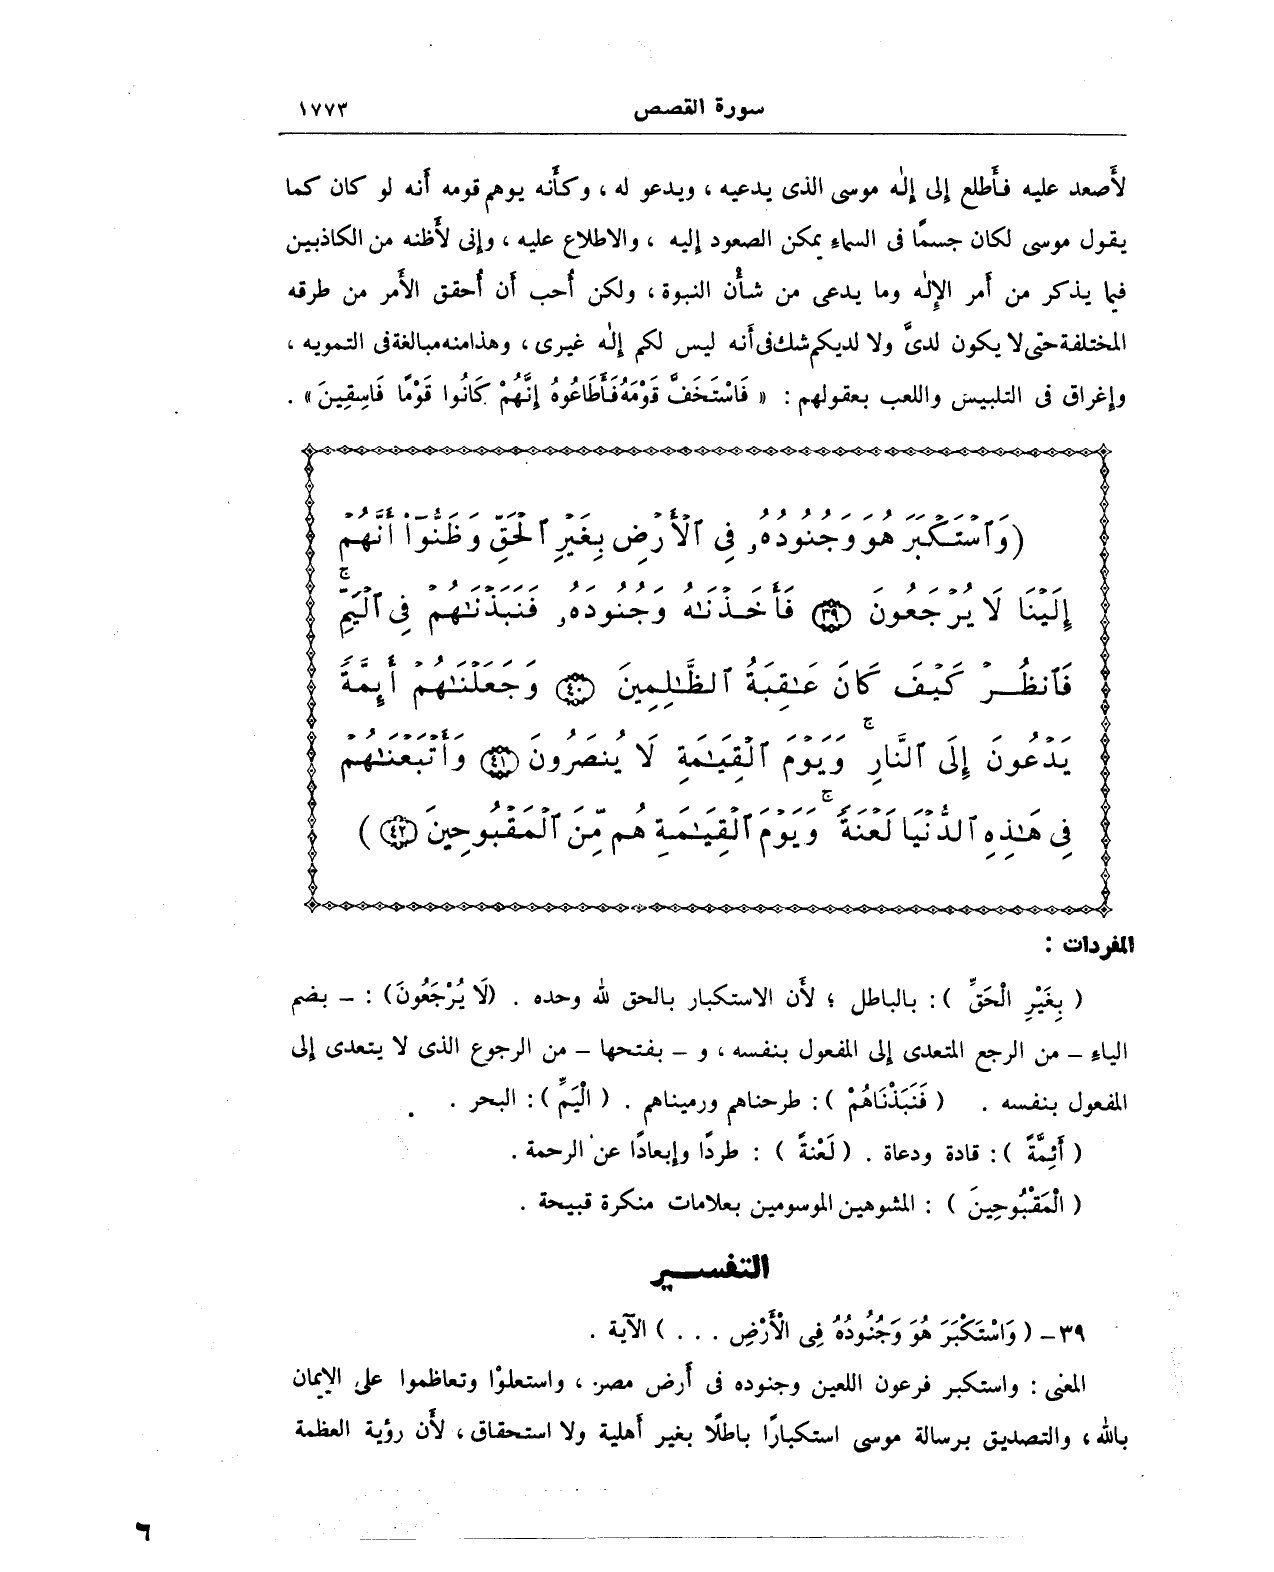 سورة القصص ١٧٧٣
لأَصعد عليه فأَطلع إلى إلٰه موسى الذى يدعيه ، ويدعو له ، وكأَنه يوهم قومه أَنه لو كان كما
يقول موسى لكان جسمًا فى السماء يمكن الصعود إليه ، والاطلاع عليه ، وإنى لأَظنه من الكاذبين
فيما يذكر من أَمر الإِلٰه وما يدعى من شأْن النبوة ، ولكن أُحب أَن أُحقق الأَمر من طرقه
المختلفة حتى لا يكون لدىَّ ولا لديكم شك فى أنه ليس لكم إلٰه غيرى ، وهذا منه مبالغة فى التمويه ،
وإغراق فى التلبيس واللعب بعقولهم : « فَاسْتَخَفَّ قَوْمَهُ فَأَطَاعُوهُ إِنَّهُمْ كَانُوا قَوْمًا فَاسِقِينَ » .
(وَٱسْتَكْبَرَ هُوَ وَجُنُودُهُۥ فِى ٱلْأَرْضِ بِغَيْرِ ٱلْحَقِّ وَظَنُّوٓا۟ أَنَّهُمْ
إِلَيْنَا لَا يُرْجَعُونَ ٣٩ فَأَخَذْنَٰهُ وَجُنُودَهُۥ فَنَبَذْنَٰهُمْ فِى ٱلْيَمِّ ۖ
فَٱنظُرْ كَيْفَ كَانَ عَٰقِبَةُ ٱلظَّٰلِمِينَ ٤٠ وَجَعَلْنَٰهُمْ أَئِمَّةً
يَدْعُونَ إِلَى ٱلنَّارِ ۖ وَيَوْمَ ٱلْقِيَٰمَةِ لَا يُنصَرُونَ ٤١ وَأَتْبَعْنَٰهُمْ
فِى هَٰذِهِ ٱلدُّنْيَا لَعْنَةً ۖ وَيَوْمَ ٱلْقِيَٰمَةِ هُم مِّنَ ٱلْمَقْبُوحِينَ ٤٢ )
المفردات :
( بِغَيْرِ الْحَقِّ ) : بالباطل ؛ لأَن الاستكبار بالحق لله وحده . (لَا يُرْجَعُونَ) : – بضم
الياء – من الرجع المتعدى إلى المفعول بنفسه ، و – بفتحها – من الرجوع الذى لا يتعدى إلى
المفعول بنفسه . ( فَنَبَذْنَاهُمْ ) : طرحناهم ورميناهم . ( الْيَمِّ ) : البحر .
( أَئِمَّةً ) : قادة ودعاة . ( لَعْنَةً ) : طردًا وإبعادًا عن الرحمة .
( الْمَقْبُوحِينَ ) : المشوهين الموسومين بعلامات منكرة قبيحة .
التفسير
٣٩– ( وَاسْتَكْبَرَ هُوَ وَجُنُودُهُ فِى الْأَرْضِ . . . ) الآية .
المعنى : واستكبر فرعون اللعين وجنوده فى أَرض مصر ، واستعلوْا وتعاظموا على الإيمان
بالله ، والتصديق برسالة موسى استكبارًا باطلًا بغير أَهلية ولا استحقاق ، لأَن رؤية العظمة
٦